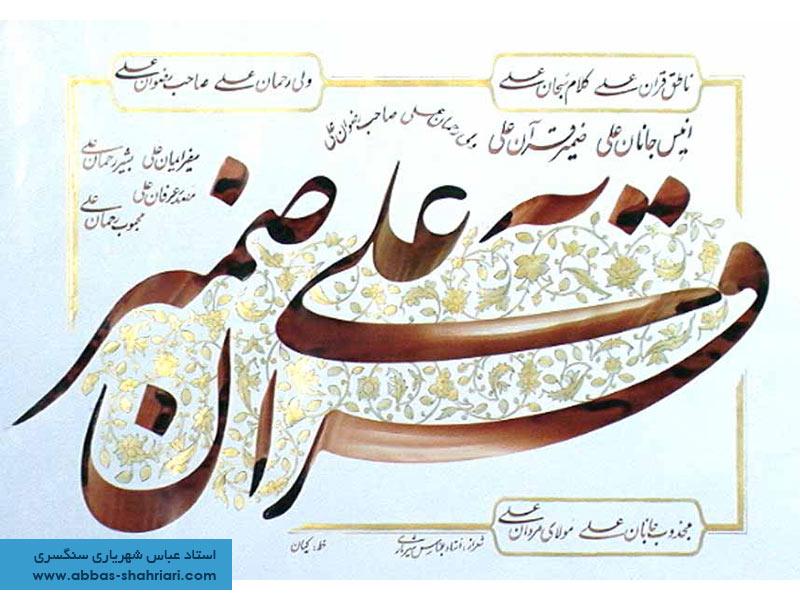 ناطق قرآن علی کلام سبحان علی
ولی رحمان علی صاحب رضوان علی
انیس جانان علی ضمیر قرآن علی
ولی رحمان علی صاحب رضوان علی
سفیر ایمان علی بشیر رحمان علی
عرفان علی
محبوب رحمان علی
ضمیر قرآن علی
مجذوب جانان علی مولای مردان علی
شعر از: استاد عباس شهریاری
خط: کیان
استاد عباس شهریاری سنگسری
www.abbas-shahriari.com